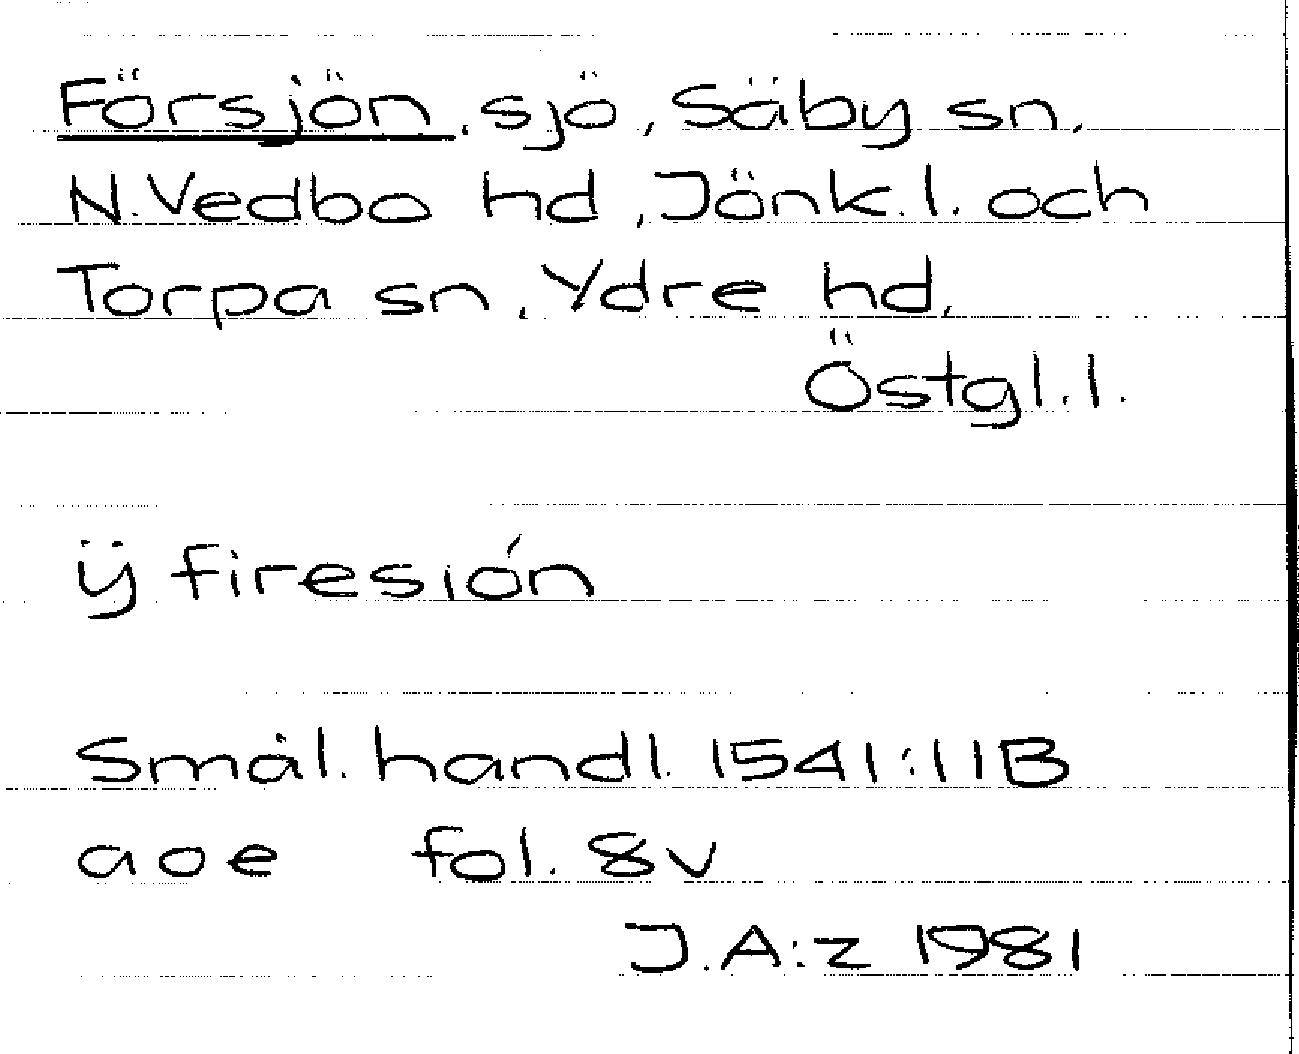 Försjön, sjö, Säby sn,
N. Vedbo hd, Jönk. l. och
Torpa sn, Ydre hd,
Östgl. l.
ÿ firesión
Smål. handl. 1541:11B
aoe fol. 8v
J.A:z 1981